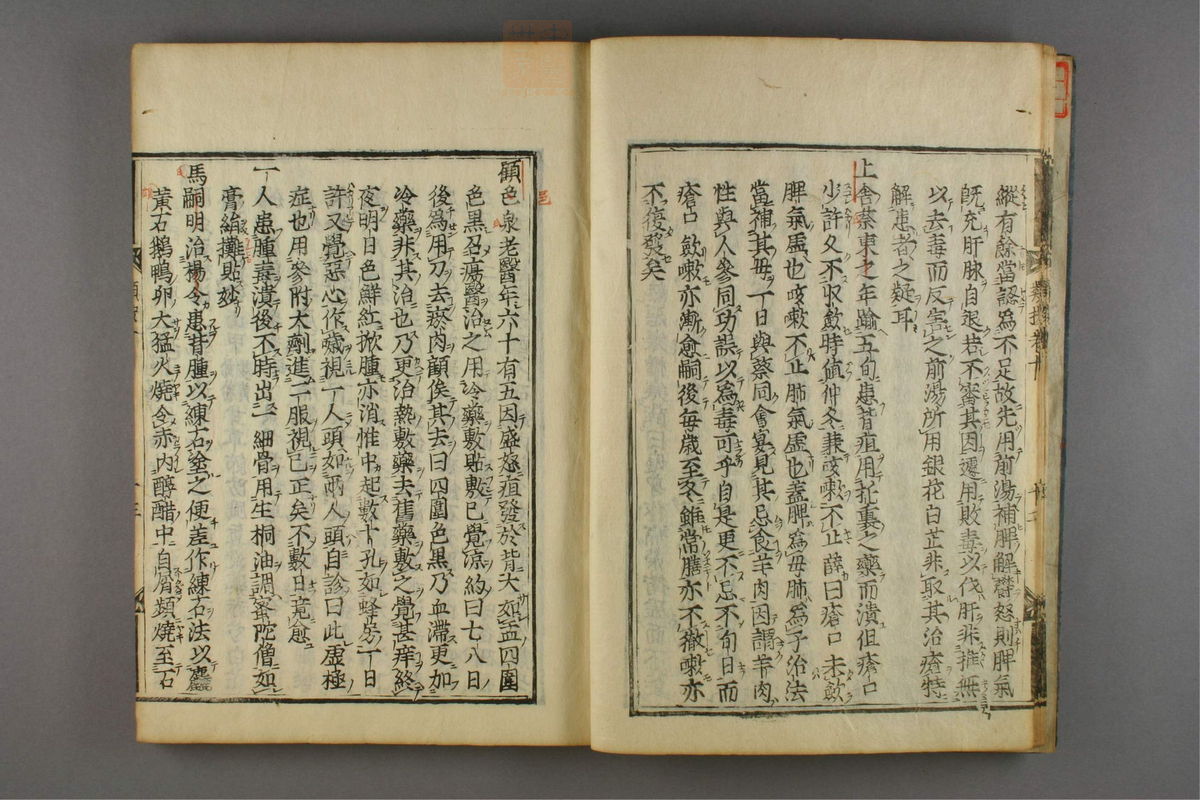 縱有餘當認爲不足故先用前湯補脾解欝怒則脾氣
既充肝脉自退若不審其因遽用敗毒以伐肝非推無
以去毒而反害之前湯所用銀花白芷非取其治瘡特
解患者之疑耳
上舍蔡東之年踰五旬患背疽用托裏之藥而潰但瘡口
少許久不収歛時値仲冬兼咳嗽不止薛曰瘡口未歛
脾氣虛也咳嗽不止肺氣虛也葢脾爲母肺爲子治法
當補其母一日與蔡同會宴見其忌食羊肉因謂羊肉
性與人參同功誤以爲毒可乎自是更不忌不旬日而
瘡口歛嗽亦漸愈嗣後每歲至冬雖常膳亦不徹嗽亦
不復發矣
顧色泉老醫年六十有五因盛怒疽發於背大如盂四圍
色黒召瘍醫治之用冷藥敷貼敷已覺凉約曰七八日
後爲用刀去瘀肉顧俟其去曰四圍色黒乃血滯更加
冷藥非其治也乃更治熱敷藥去舊藥敷之覺甚痒終
夜明日色鮮紅掀腫亦消惟中起數十孔如蜂房一日
許又覺惡心作嘔視一人頭如兩人頭自診曰此虛極
症也用參附大劑進二服視已正矣不數日竟愈
一人患腫毒潰後不時出二三細骨用生桐油調蜜陀僧如
膏絹攤貼妙
馬嗣明治楊令患背腫以練石塗之便差作練石法以麁
黃石鵝鴨卵大猛火燒令赤内醇醋中自屑頻燒至石